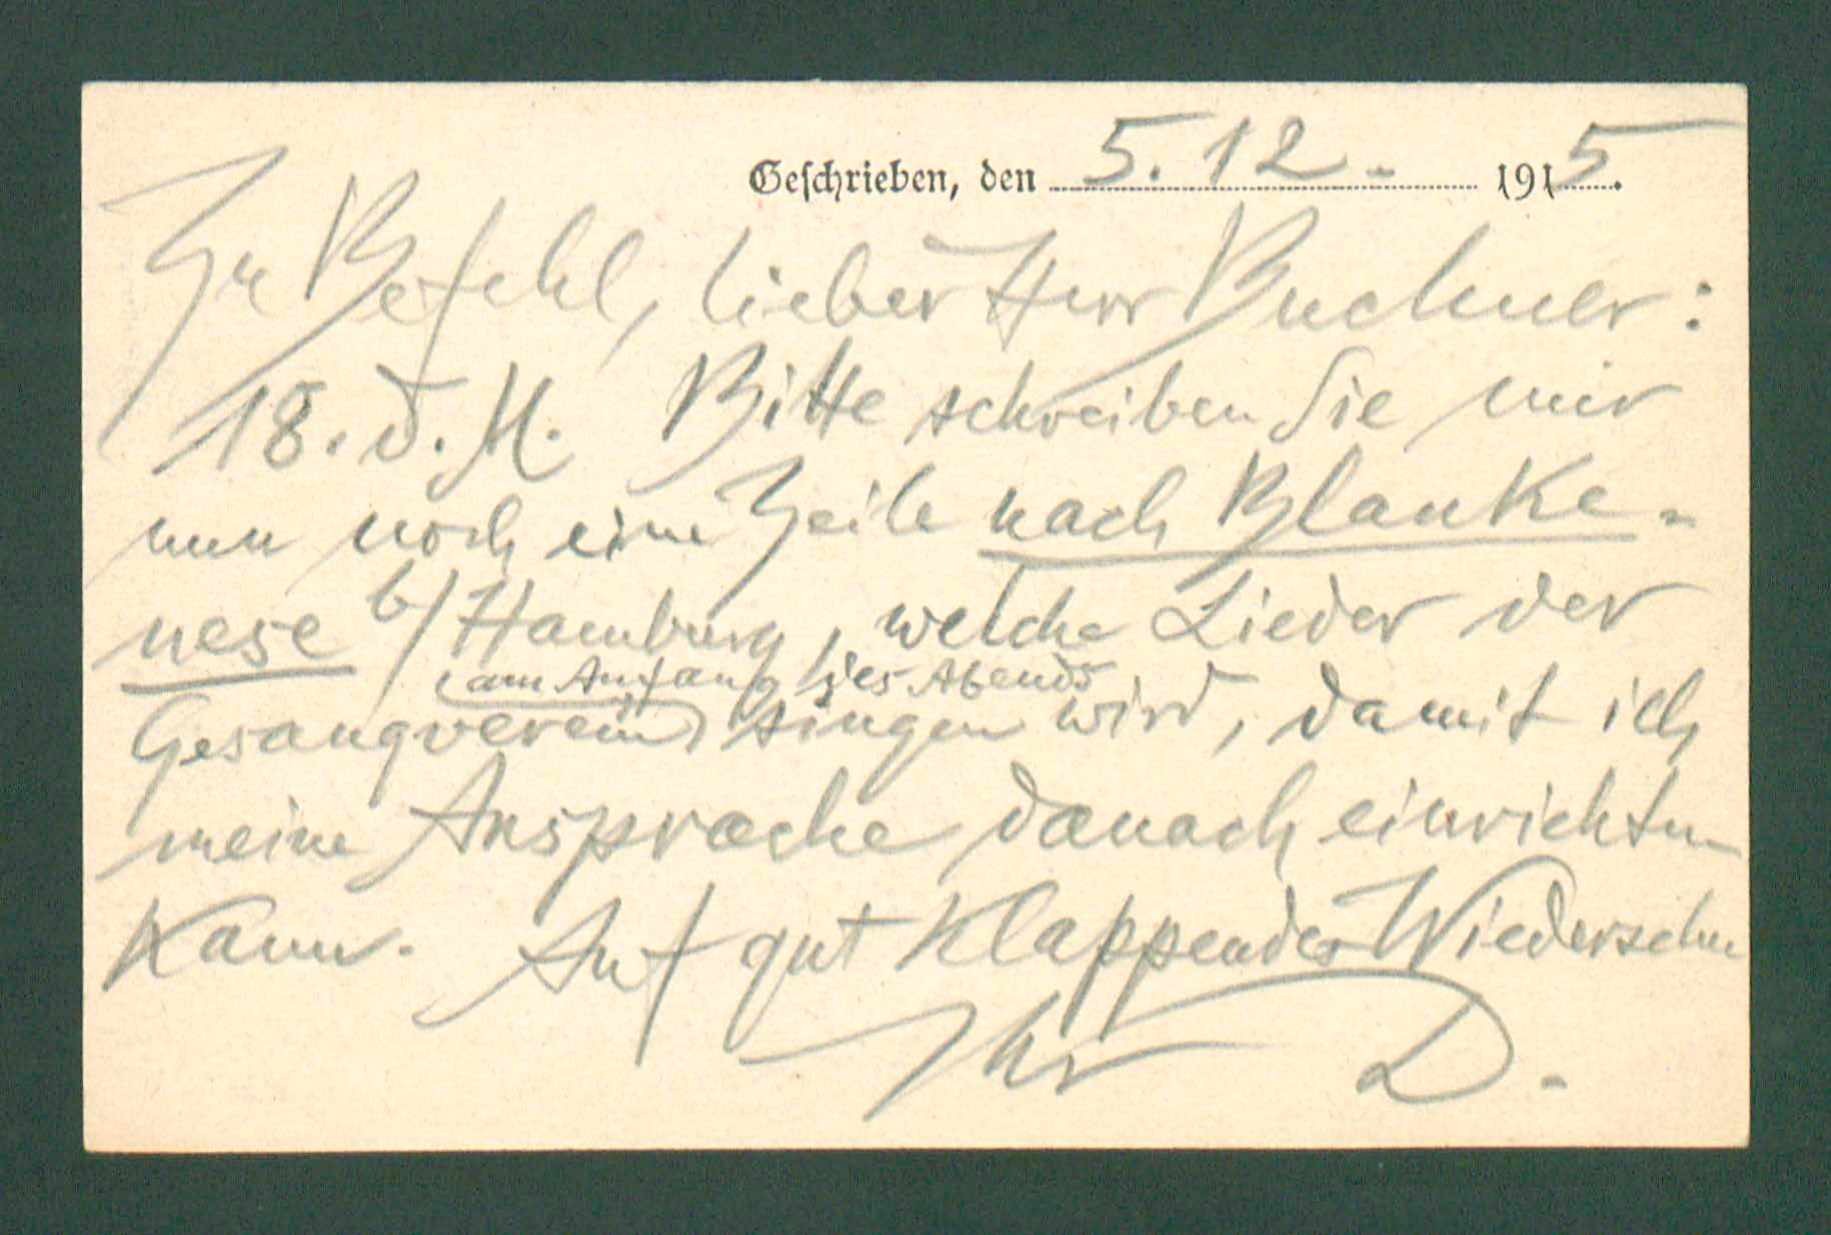 Geschrieben, den 5. 12. 1915.
Zu Befehl, lieber Herr Buchner:
18. d. M. Bitte schreiben Sie mir
nun noch eine Zeile nach Blanke-
nese b/ Hamburg, welche Lieder der
(am Anfang des Abends
Gesangverein) singen wird, damit ich
meine Ansprache danach einrichten
kann. Auf gut klappendes Wiedersehn
Ihr D.